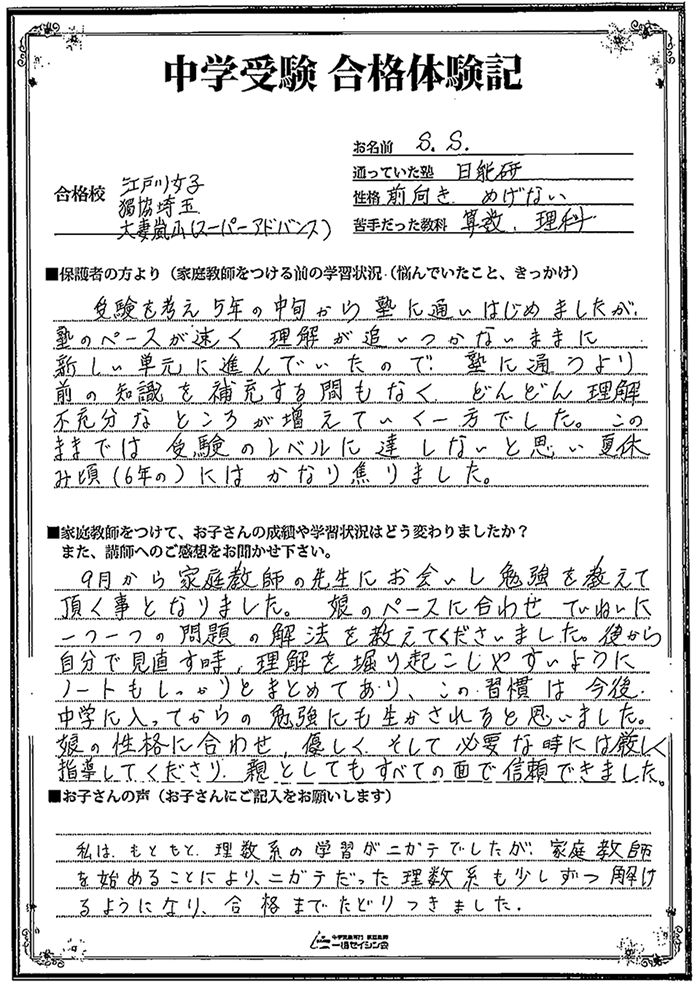 中学受験 合格体験記
お名前 S. S.
通っていた塾 日能研
性格 前向き めげない
苦手だった教科 算数、理科
合格校 江戸川女子
獨協埼玉
大妻嵐山(スーパーアドバンス)
■保護者の方より（家庭教師をつける前の学習状況（悩んでいたこと、きっかけ）
受験を考え 5年の中旬から 塾に通いはじめましたが、
塾のペースが速く 理解が追いつかないままに
新しい単元に進んでいたので 塾に通うより
前の知識を補充する間もなく どんどん理解
不充分なところが増えていく一方でした。この
ままでは 受験のレベルに達しないと思い 夏休
み頃(6年の)には かなり焦りました。
■家庭教師をつけて、お子さんの成績や学習状況はどう変わりましたか？
また、講師へのご感想をお聞かせ下さい。
9月から家庭教師の先生にお会いし勉強を教えて
頂く事となりました。娘のペースに合わせ ていねいに
一つ一つの問題の解法を教えてくださいました。後から
自分で見直す時、理解を掘り起こしやすいように
ノートもしっかりとまとめてあり、この習慣は今後
中学に入ってからの勉強にも生かされると思いました。
娘の性格に合わせ、優しく そして必要な時には厳しく
指導してくださり 親としてもすべての面で信頼できました。
■お子さんの声（お子さんにご記入をお願いします）
私は、もともと、理数系の学習がニガテでしたが、家庭教師
を始めることにより、ニガテだった理数系も少しずつ解け
るようになり、合格までたどりつきました.
中学受験専門 家庭教師
一橋セイシン会